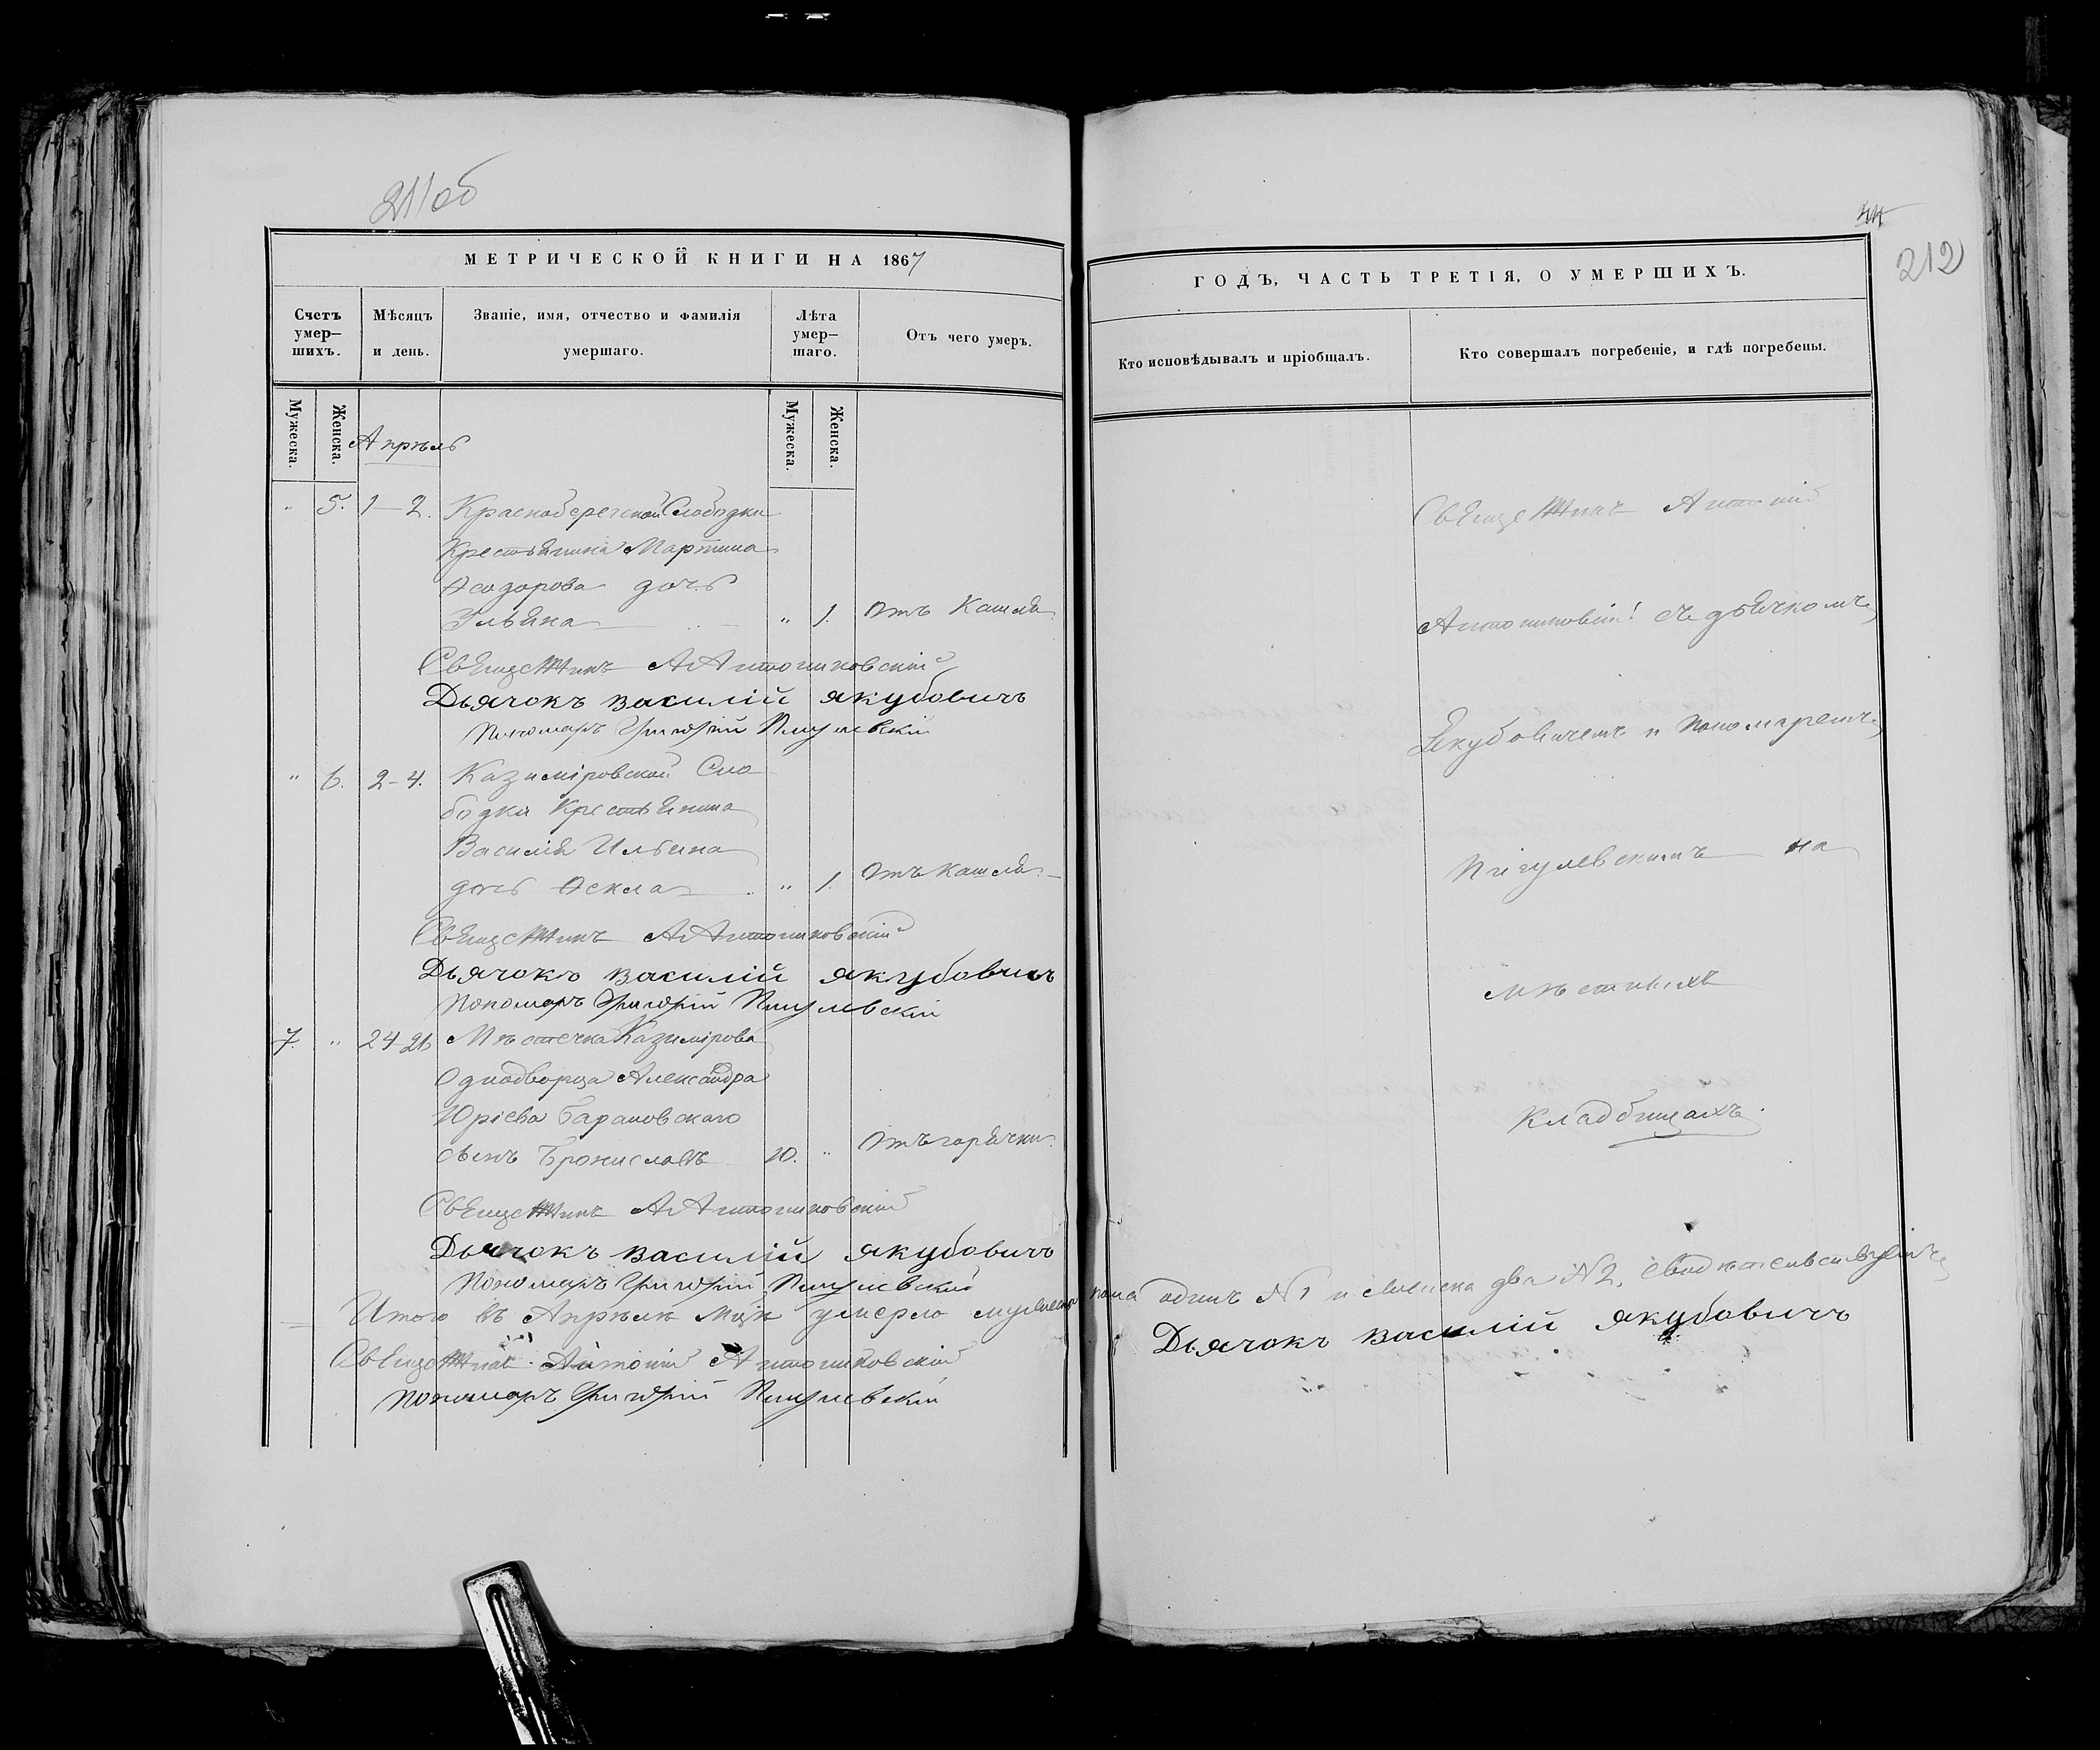 211об
МЕТРИЧЕСКОЙ КНИГИ НА 1867
Счетъ умер-шихъ.
Мѣсяцъ и день.
Званіе, имя, отчество и фамилія умершаго.
Лѣта умер-шаго.
Отъ чего умеръ.
Мужеска.
Женска.
Мужеска.
Женска.
Апрѣль
" 5. 1-2. Краснобережской Слободки
Крестьянина Мартина
Ѳеодорова дочь
Ульяна " 1. Отъ Кашля.
Священникъ А Антониковскій
Дьячокъ василій якубовичъ
Пономарь Григорій Пигулевскій
" 6. 2-4. Казиміровской Сло
бодки Крестьянина
Василія Ильина
дочь Ѳекла " 1. Отъ Кашля.
Священникъ А Антониковскій
Дьячокъ василій якубовичъ
Пономарь Григорій Пигулевскій
7. " 24-26 Мѣстечка Казимірова
Однодворца Александра
Юріева Барановскаго
сынъ Брониславъ 10. " Отъ горячки.
Священникъ А Антониковскій
Дьячокъ василій якубовичъ
Пономарь Григорій Пигулевскій
Итого въ Апрѣлѣ Мцѣ умерло мужеска
Священникъ Антоній Антониковскій
Пономарь Григорій Пигулевскій
212
ГОДЪ, ЧАСТЬ ТРЕТІЯ, О УМЕРШИХЪ.
Кто исповѣдывалъ и пріобщалъ.
Кто совершалъ погребеніе, и гдѣ погребены.
Священникъ Антоній
Антониковскій съ дьячкомъ
Якубовичемъ и пономаремъ
Пигулевскимъ на
мѣстныхъ
кладбищахъ.
пола одинъ N1 и женска два N2, свидѣтельствуемъ
Дьячокъ василій якубовичъ